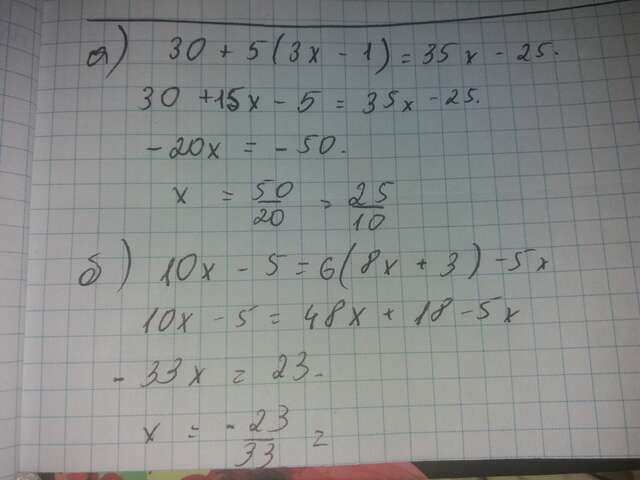 а) 30 + 5(3x - 1) = 35x - 25.
30 + 15x - 5 = 35x - 25.
- 20x = - 50.
x = 50/20 = 25/10
б) 10x - 5 = 6(8x + 3) - 5x
10x - 5 = 48x + 18 - 5x
- 33x = 23.
x = - 23/33 =